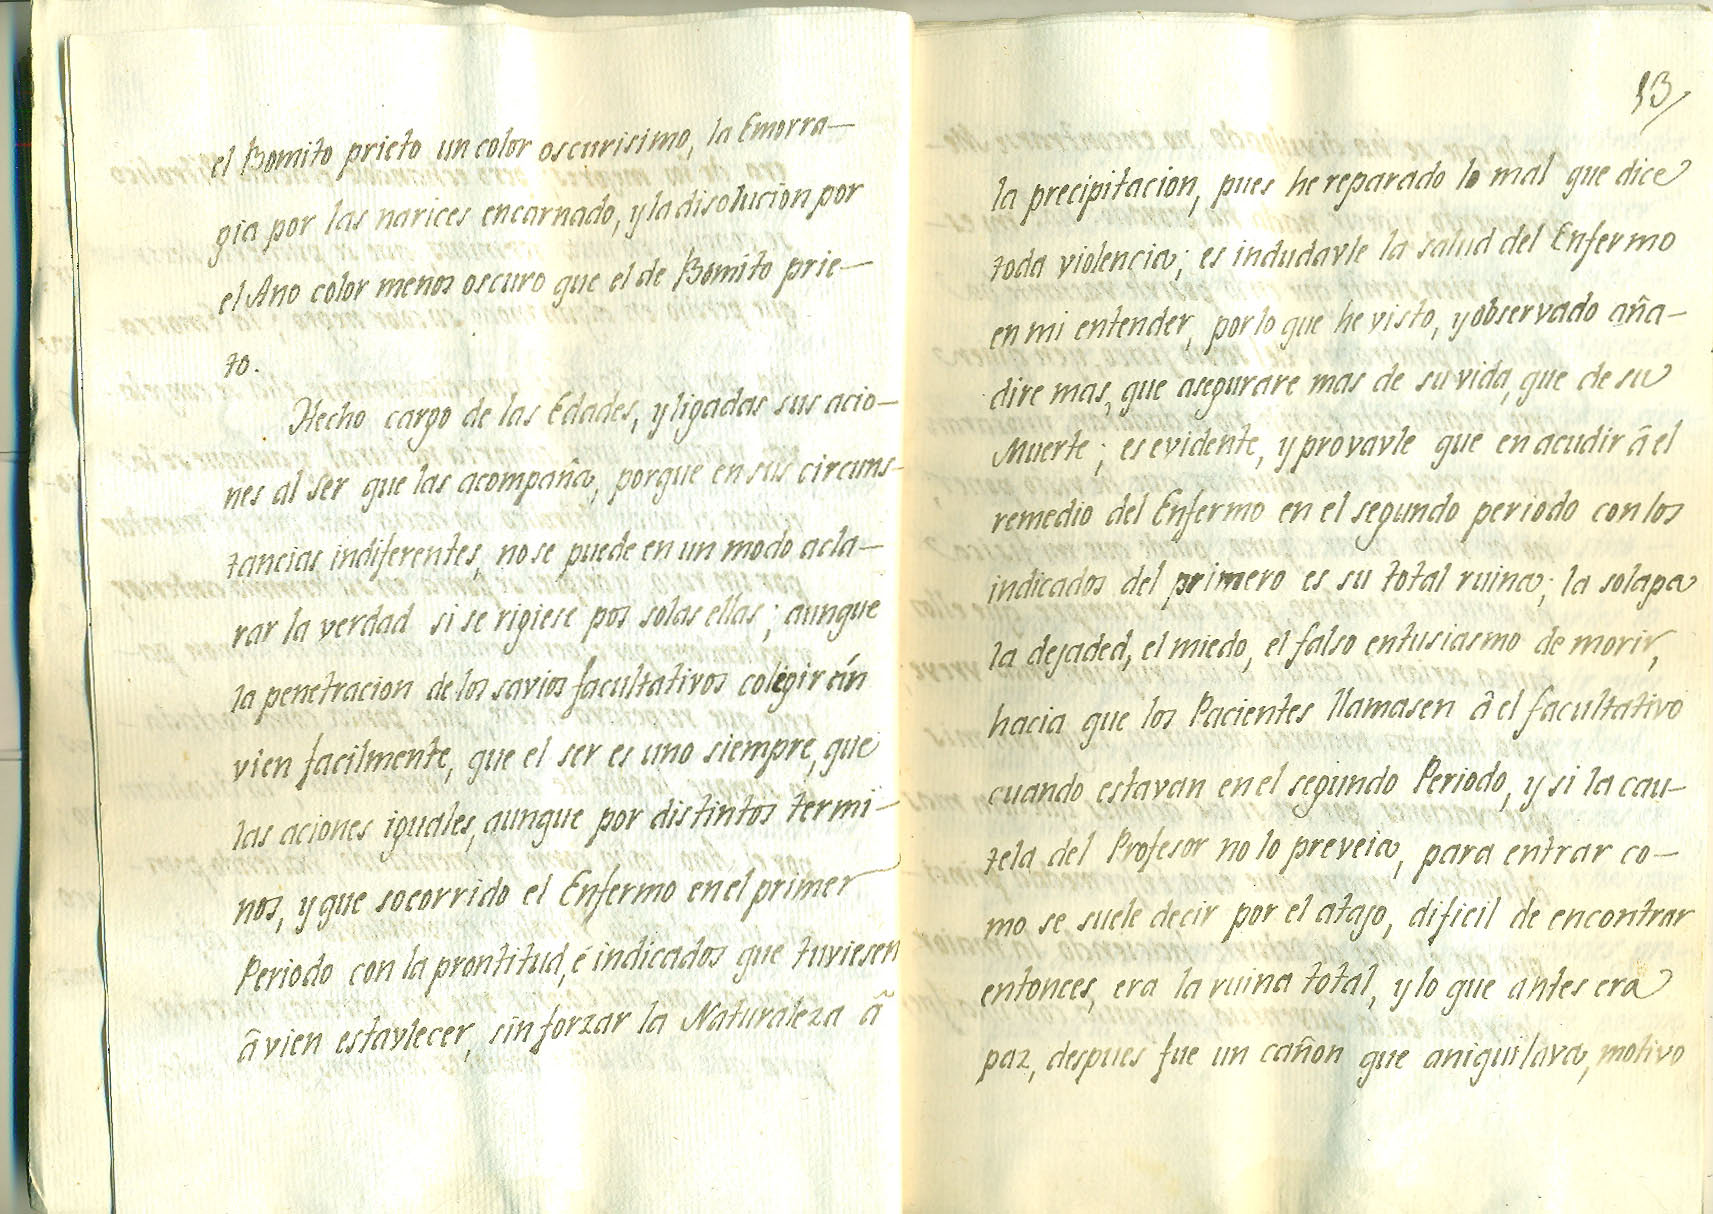 el Bomito prieto un color oscurisimo, la Emorra-
gia por las narices encarnado, y la disolucion por
el Ano color menos oscuro que el de Bomito prie-
to.
Hecho cargo de las Edades, y ligadas sus acio-
nes al ser que las acompaña, porque en sus circuns-
tancias indiferentes, no se puede en un modo acla-
rar la verdad si se rigiese por solas ellas; aunque
la penetracion de los savios facultativos colegirán
vien facilmente, que el ser es uno siempre, que
las aciones iguales, aunque por distintos termi-
nos, y que socorrido el Enfermo en el primer
Periodo con la prontitud, é indicados que tuviesen
â vien estavlecer, sin forzar la Naturaleza â
13
la precipitacion, pues he reparado lo mal que dice
toda violencia; es indudavle la salud del Enfermo
en mi entender, por lo que he visto, y observado aña-
dire mas, que asegurare mas de su vida, que de su
Muerte; es evidente, y provavle que en acudir â el
remedio del Enfermo en el segundo periodo con los
indicados del primero es su total ruina; la solapa
la dejaded, el miedo, el falso entusiasmo de morir,
hacia que los Pacientes llamasen â el facultativo
cuando estavan en el segundo Periodo, y si la cau-
tela del Profesor no lo preveia, para entrar co-
mo se suele decir por el atajo, dificil de encontrar
entonces, era la ruina total, y lo que antes era
paz, despues fue un cañon que aniquilava, motivo